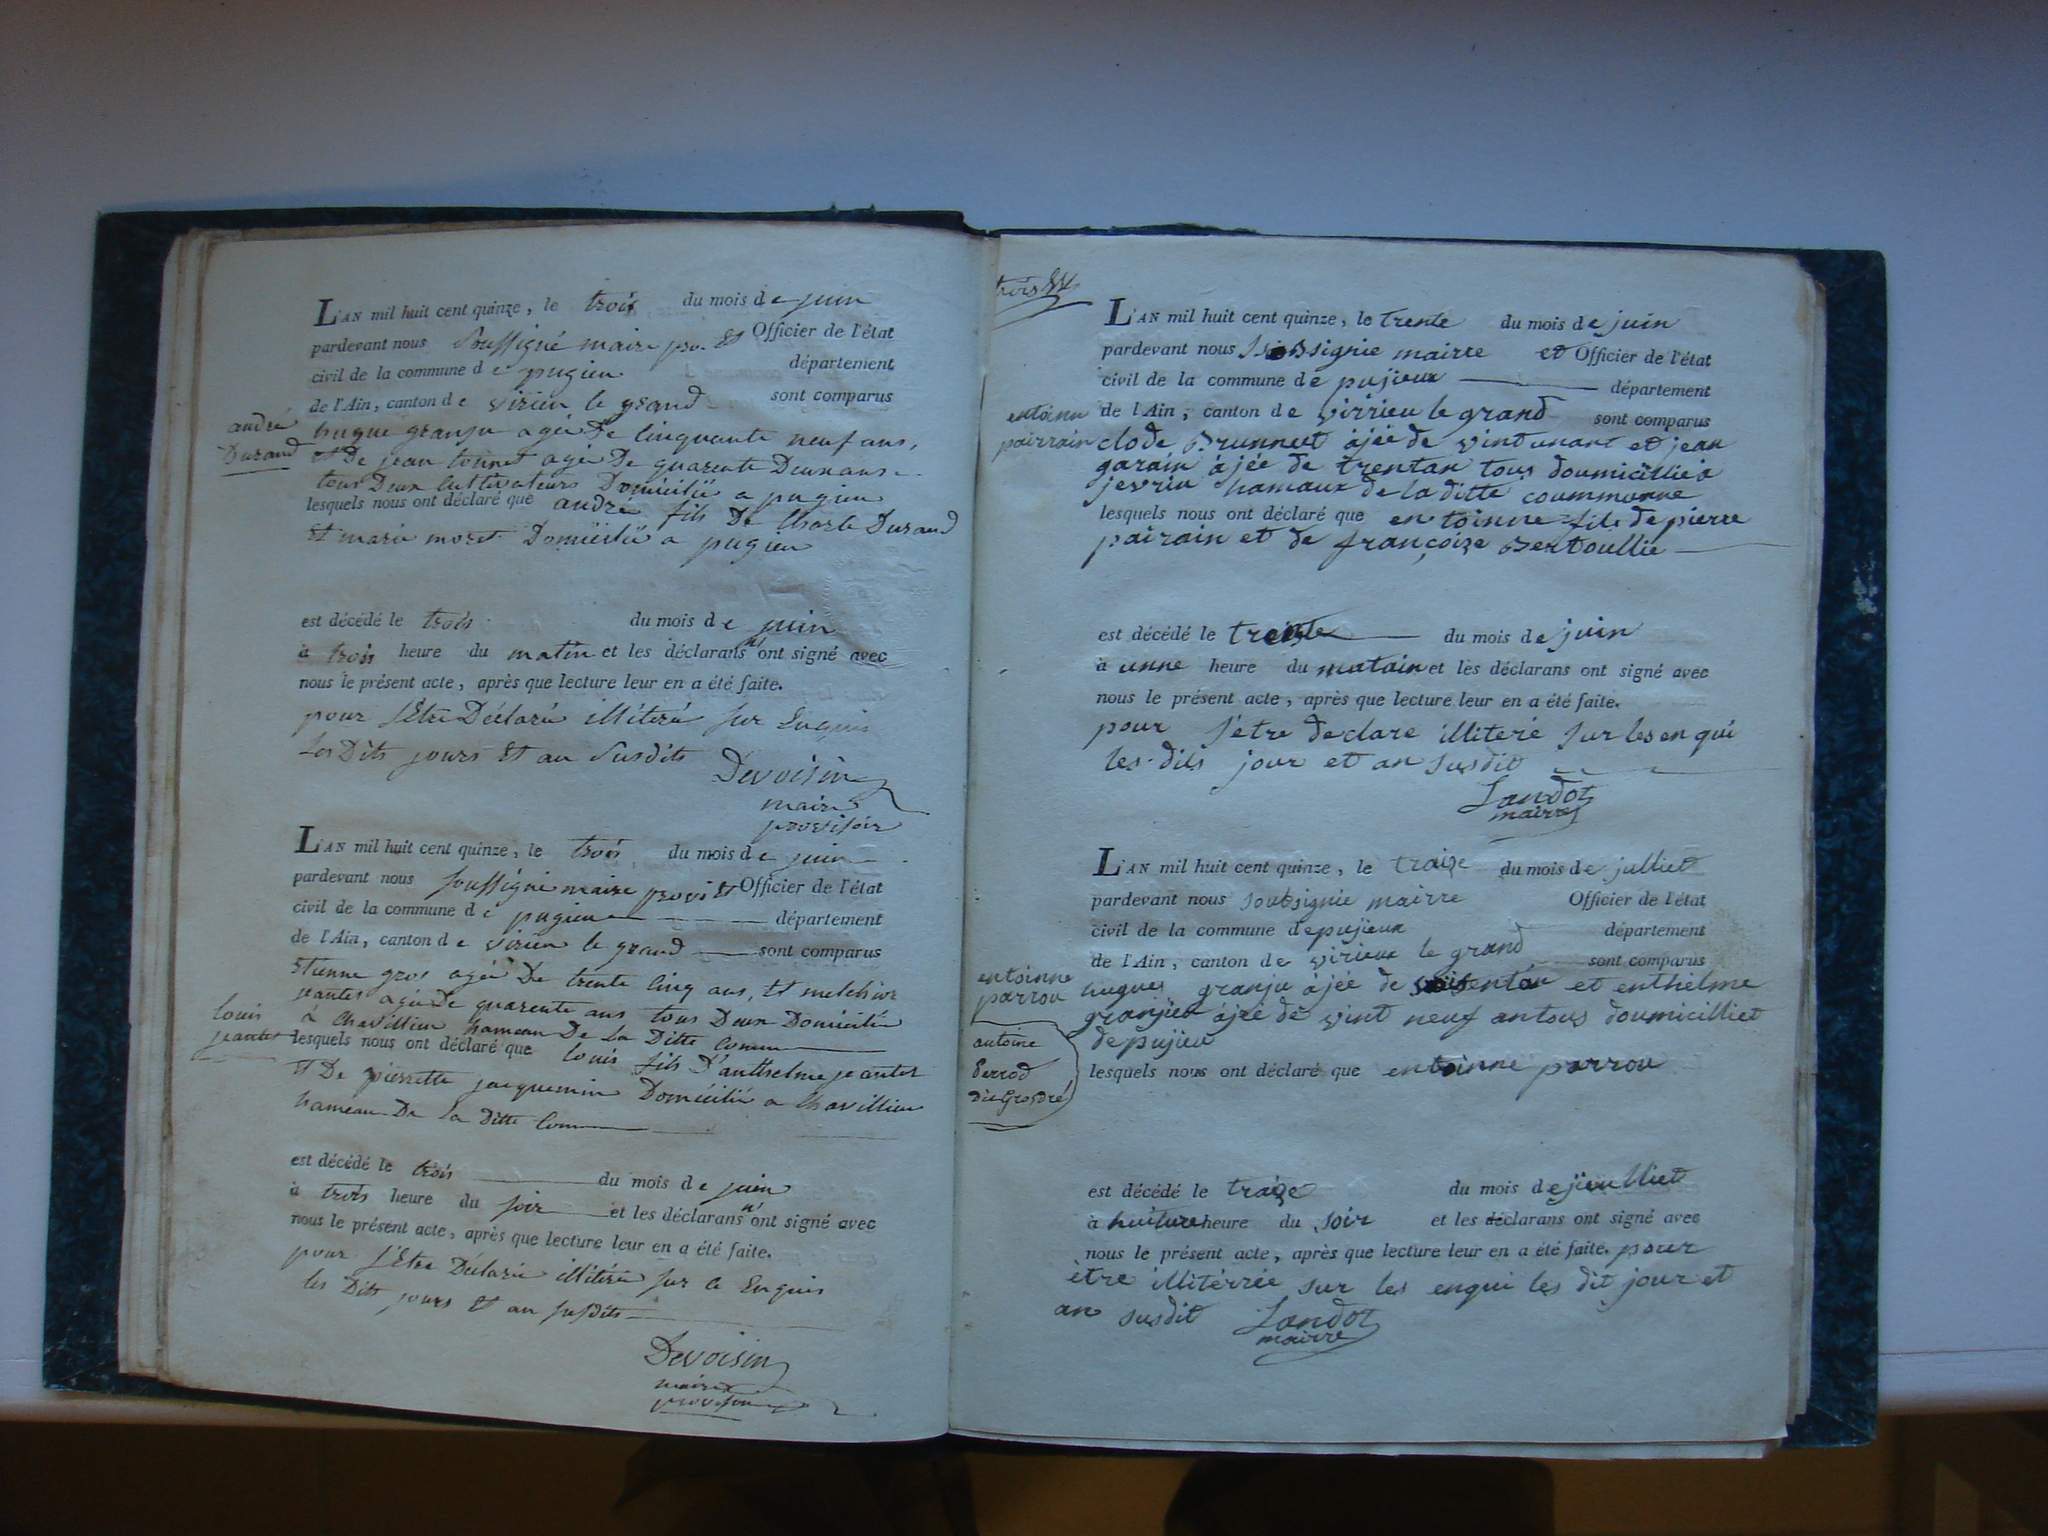 L'AN mil huit cent quinze, le trois du mois de juin
pardevant nous Soussigné maire pro. Et Officier de l'état
civil de la commune de pugieu département
de l'Ain, canton de virieu le grand sont comparus
andré
Durand
hugue granju agé De Cinquante neuf ans,
et De jean tonnet agé De quarente Deux ans
tous Deux Cultivateurs Domicilié a pugieu
lesquels nous ont déclaré que andré fils De Charle Durand
Et marie moret Domicilié a pugieu
est décédé le trois du mois de juin
à trois heure du matin et les déclarans n' ont signé avec
nous le présent acte, après que lecture leur en a été faite.
pour s'Etre Déclaré illitéré sur Enquis
Les Dits jours Et an Susdits
Devoisin
maire
provisoir
L'AN mil huit cent quinze, le trois du mois de juin
pardevant nous soussigné maire provis Et Officier de l'état
civil de la commune de pugieu département
de l'Ain, canton de virieu le grand sont comparus
Etienne gros agée De trente Cinq ans, Et melchior
jeantet agé de quarente ans tous Deux Domicilié
à Chavillieu hameau De La Ditte Comm
louis
jeantet
lesquels nous ont déclaré que louis fils D'anthelme jeantet
Et De pierrette jacquemin Domicilié a Chavillieu
hameau De La Ditte Com
est décédé le trois du mois de juin
à trois heure du soir et les déclarans n' ont signé avec
nous le présent acte, après que lecture leur en a été faite.
pour s'Etre Déclaré illitéré sur ce Enquis
les Dits jours Et an susdits
Devoisin
maire
provisoir
L'AN mil huit cent quinze, le trente du mois de juin
pardevant nous soubsignie mairre et Officier de l'état
civil de la commune de pujieux département
de l'Ain, canton de virrieu le grand sont comparus
entoinne
pairrain
clode Brunnet àjée de vint unant et jean
garain àjée de trentan tous doumicillié a
jevrin hamaux de la ditte coummunne
lesquels nous ont déclaré que entoinne fils de pierre
pairain et de françoize Bertoullie
est décédé le trente du mois de juin
à unne heure du matain et les déclarans ont signé avec
nous le présent acte, après que lecture leur en a été faite.
pour s'etre declare illiteré sur les en qui
les dits jour et an susdit
Landot
mairre
L'AN mil huit cent quinze, le traize du mois de julliet
pardevant nous soubsignie mairre Officier de l'état
civil de la commune de pujieux département
de l'Ain, canton de virieux le grand sont comparus
entoinne
parrou
antoine
Perrod
dit Grosdré
hugues granju àjée de soisentan et enthelme
granjux àjée de vint neuf an tous doumicilliet
de pujieu
lesquels nous ont déclaré que entoinne parrou
est décédé le traize du mois de jieulliet
à huiture heure du soir et les déclarans ont signé avec
nous le présent acte, après que lecture leur en a été faite. pour
ètre illitérrée sur les enqui les dit jour et
an susdit Landot
mairre